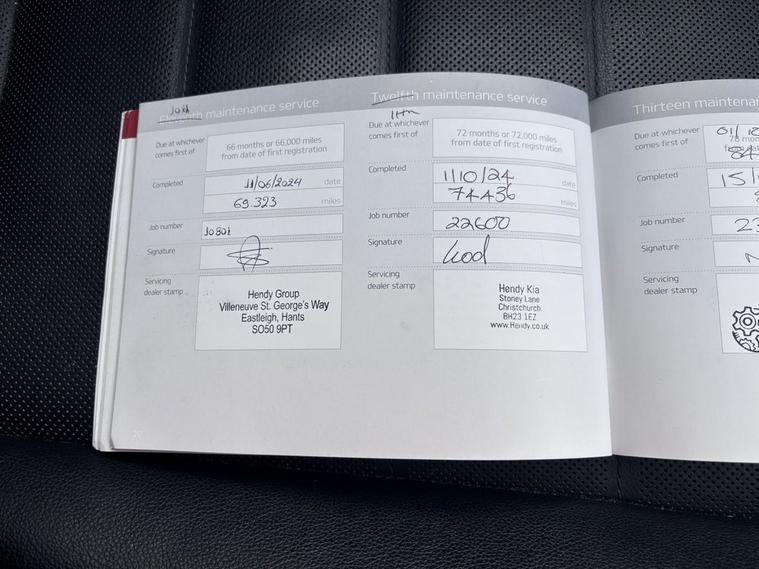 10th
Eleventh maintenance service
Due at whichever
comes first of
66 months or 66,000 miles
from date of first registration
Completed
11/06/2024 date
69.323 miles
Job number
Signature
Servicing
dealer stamp
Hendy Group
Villeneuve St. George's Way
Eastleigh, Hants
SO50 9PT
20
Twelfth maintenance service
11th
Due at whichever
comes first of
72 months or 72,000 miles
from date of first registration
Completed
1/10/24 date
74436 miles
Job number
22600
Signature
Servicing
dealer stamp
Hendy Kia
Stoney Lane
Christchurch
BH23 1EZ
www.Hendy.co.uk
Thirteen maintenan
Due at whichever
comes first of
01/
78 mon
Completed
15/
Job number
23
Signature
Servicing
dealer stamp